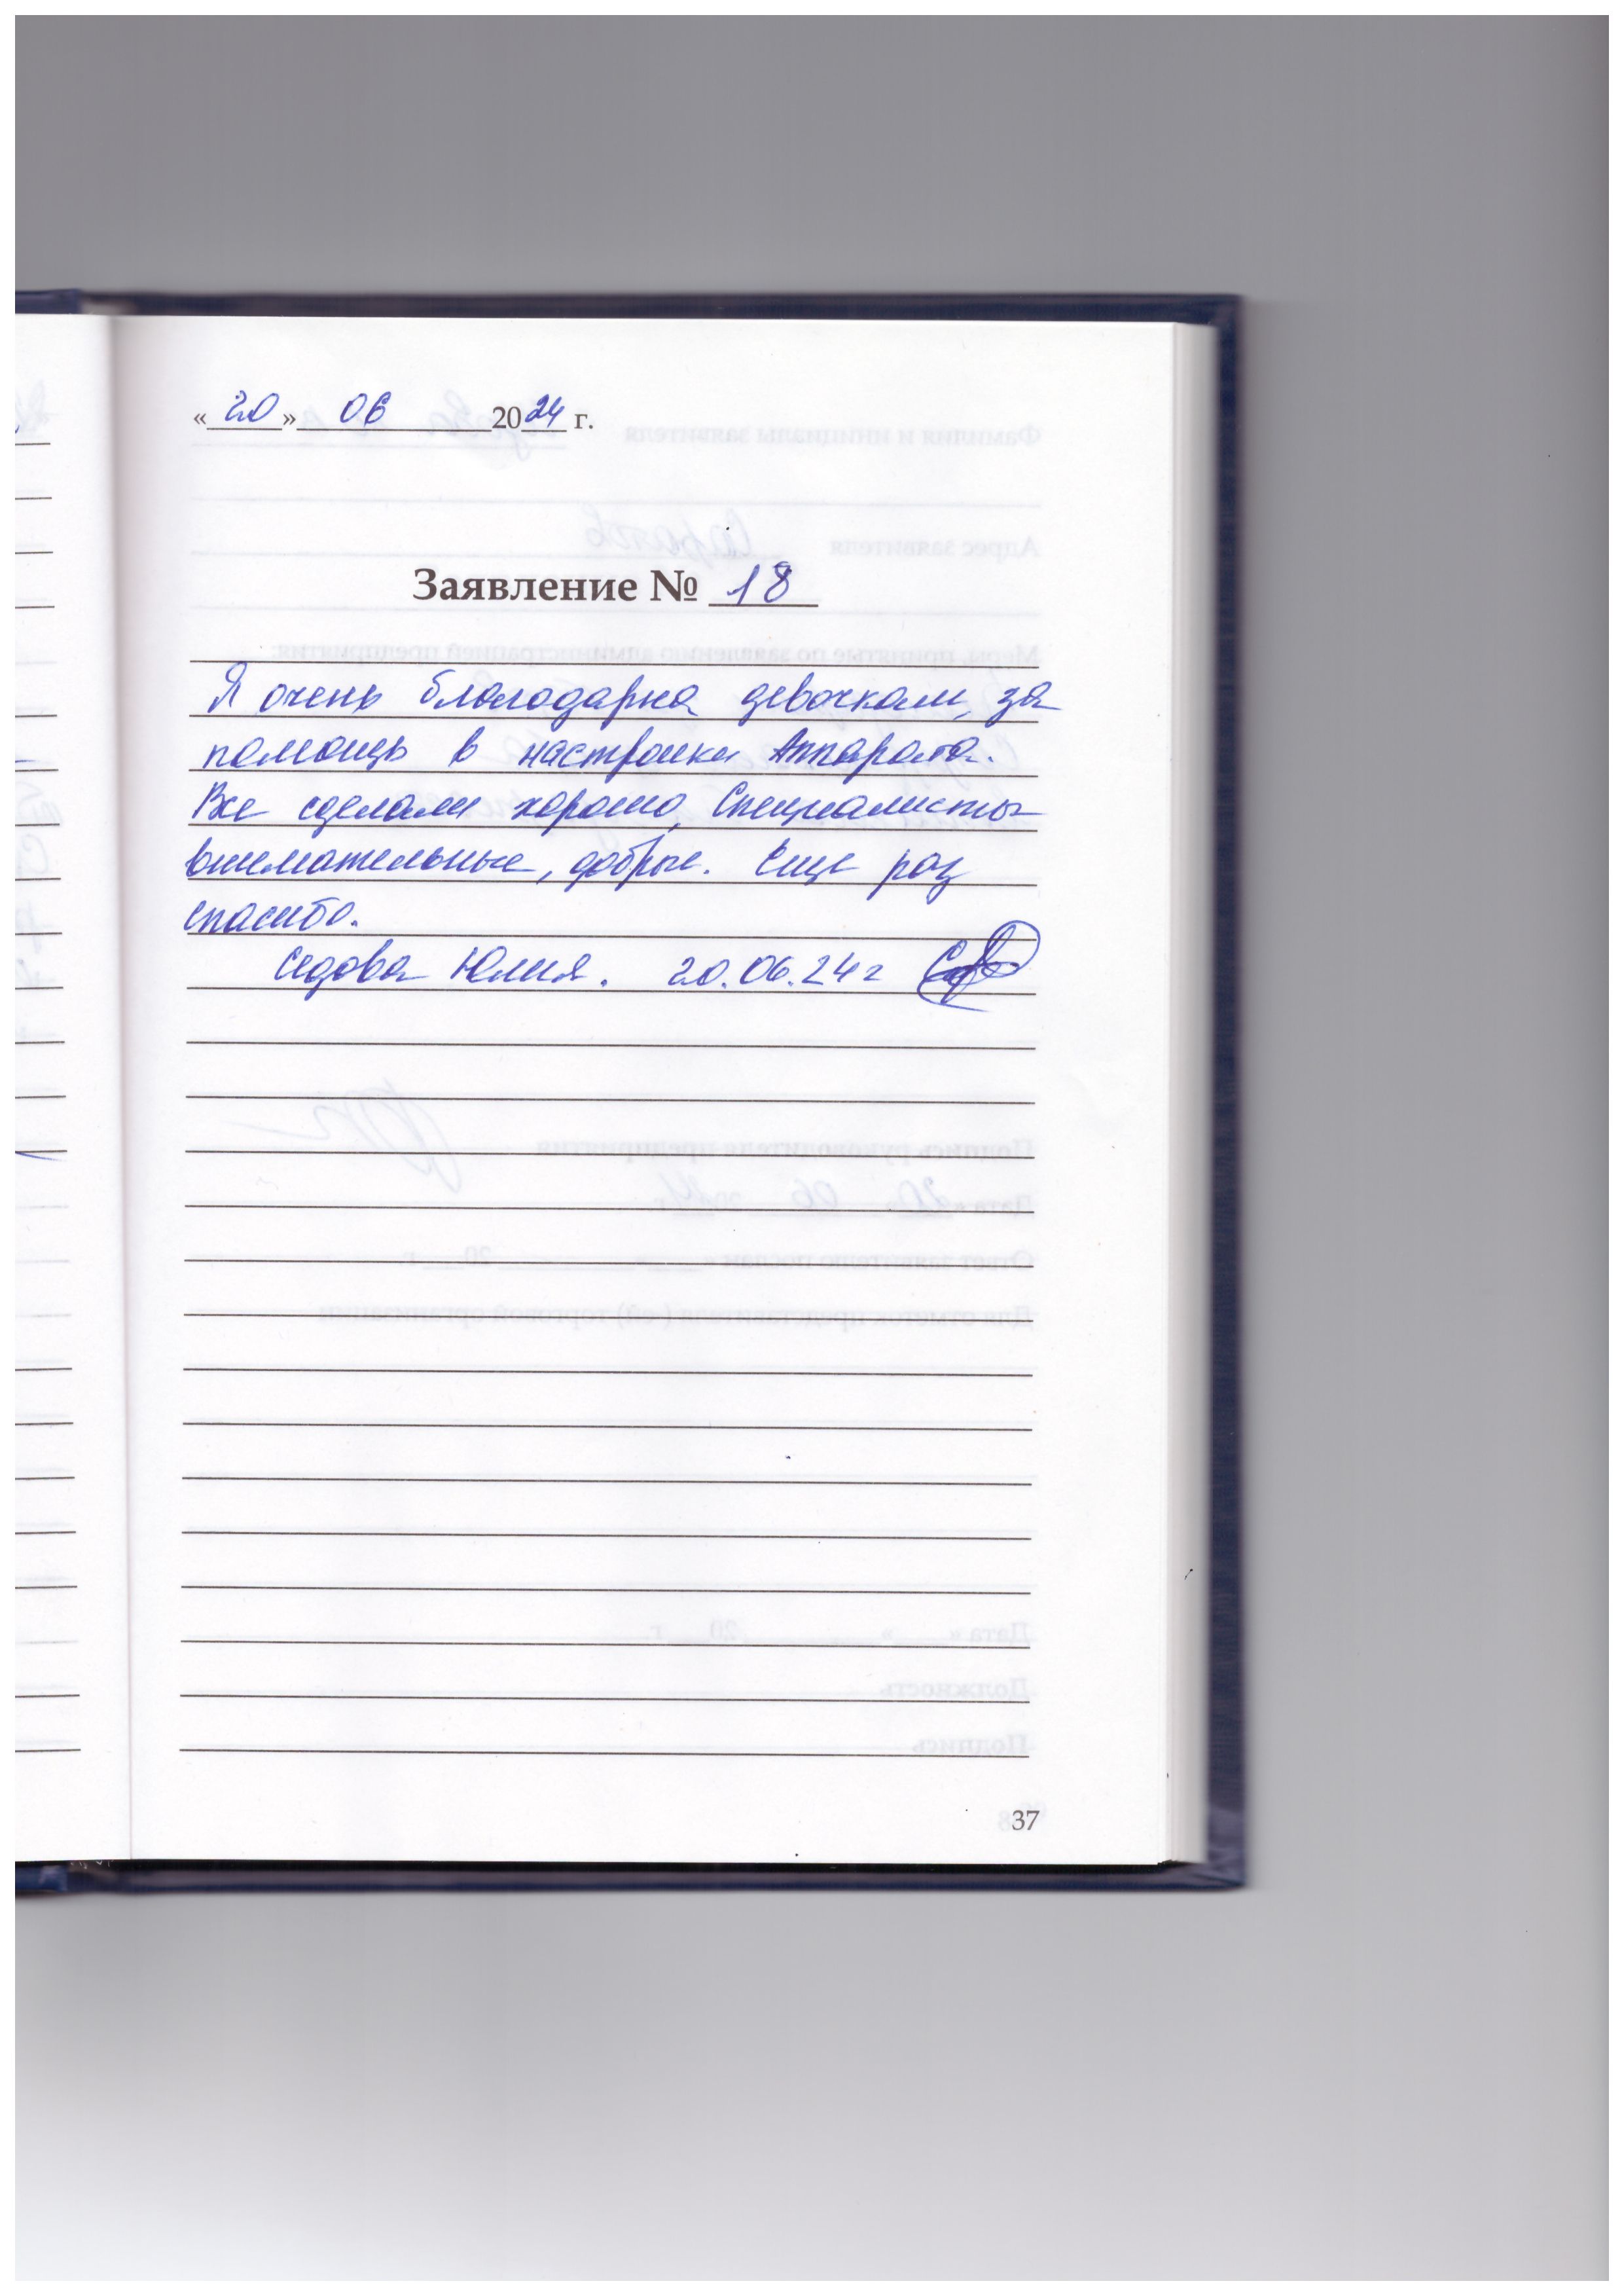 «20» 06 2024 г.
Заявление № 18
Я очень благодарна девочкам, за
помощь в настройки Аппарата.
Все сделали хорошо, Специалисты
внимательные, добрые. Еще раз
спасибо.
Седова Юлия. 20.06.24 г
37